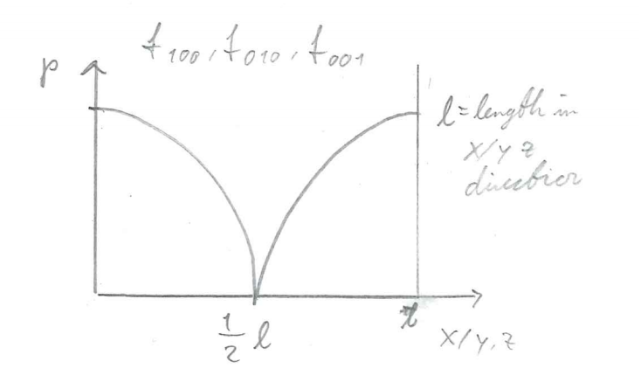 f₁₀₀, f₀₁₀, f₀₀₁
p
l = length in
x/y z
direction
1/2 l
l
x/y, z